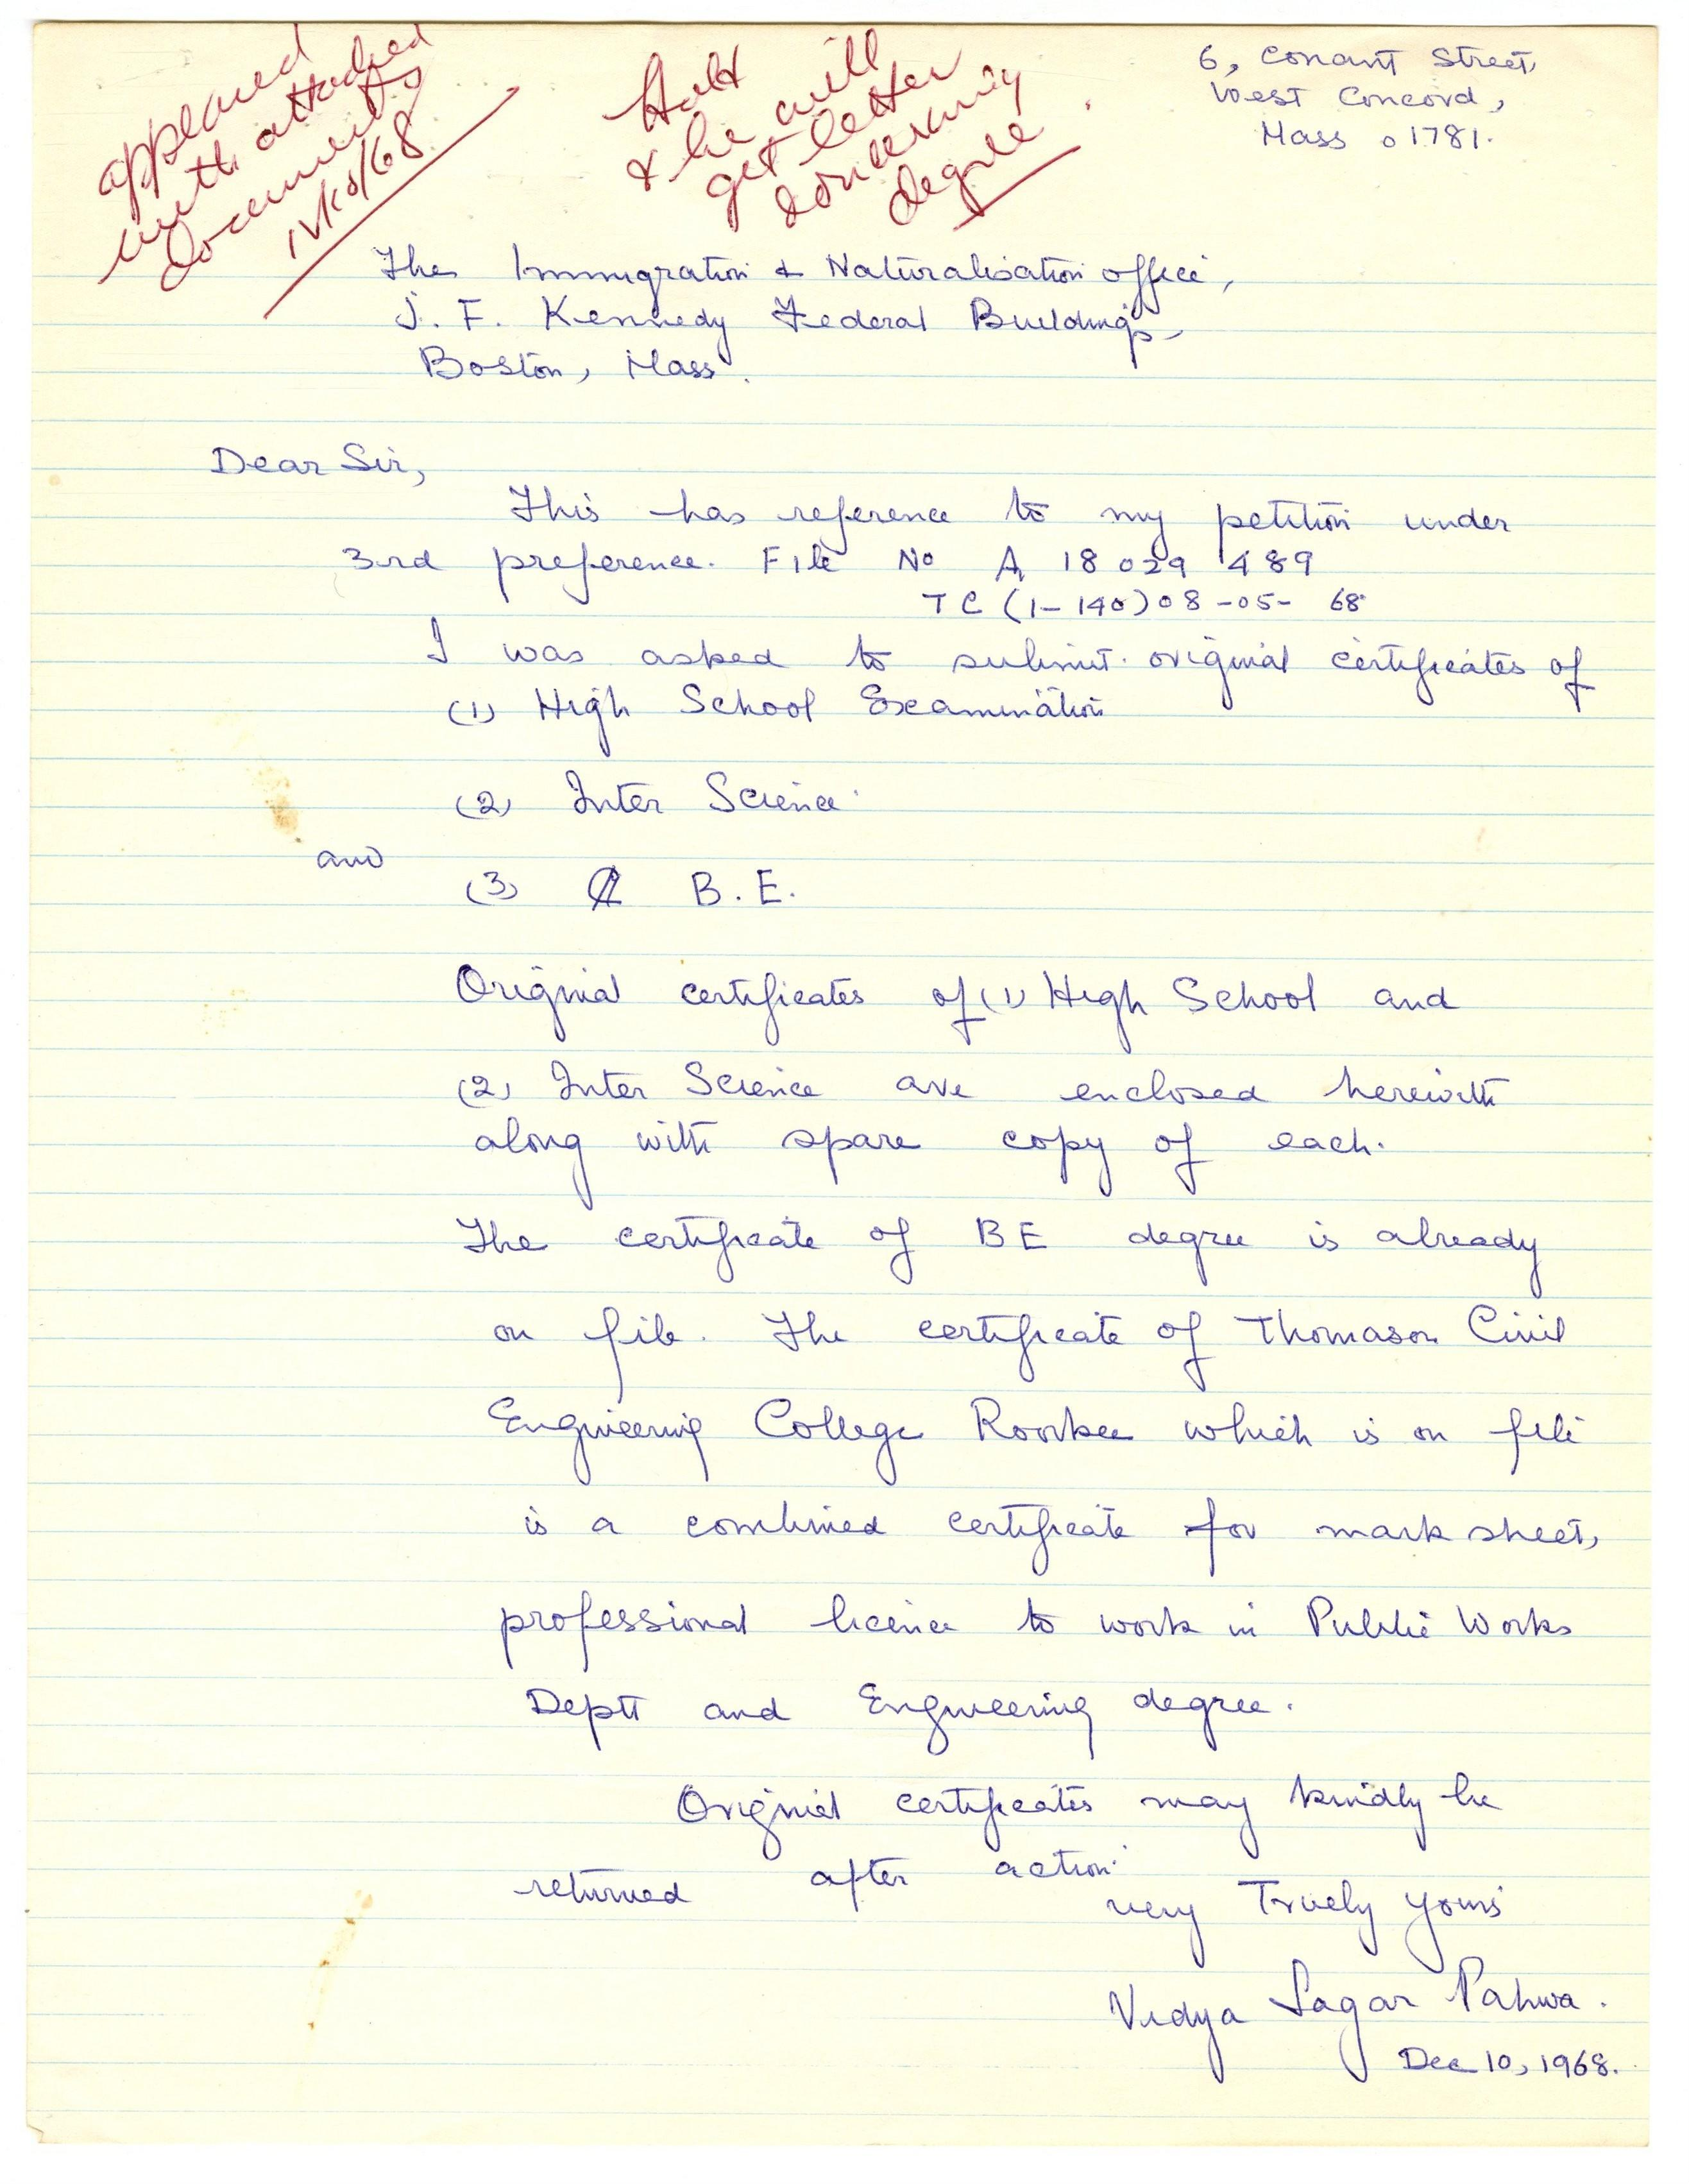 appeared
with attached
documents
12/10/68
Hold
& he will
get letter
concerning
degree.
6, Conant Street,
West Concord,
Mass 01781.
The Immigration & Naturalisation office,
J. F. Kennedy Federal Buildings,
Boston, Mass.
Dear Sir,
This has reference to my petition under
3rd preference. File No A 18 029 489
TC (1-140) 08-05-68
I was asked to submit original certificates of
(1) High School Examination
(2) Inter Science
and
(3) B.E.
Original certificates of (1) High School and
(2) Inter Science are enclosed herewith
along with spare copy of each.
The certificate of BE degree is already
on file. The certificate of Thomason Civil
Engineering College Roorkee which is on file
is a combined certificate for mark sheet,
professional licence to work in Public Works
Deptt and Engineering degree.
Original certificates may kindly be
returned after action.
very Truely yours
Vidya Sagar Pahwa.
Dec 10, 1968.